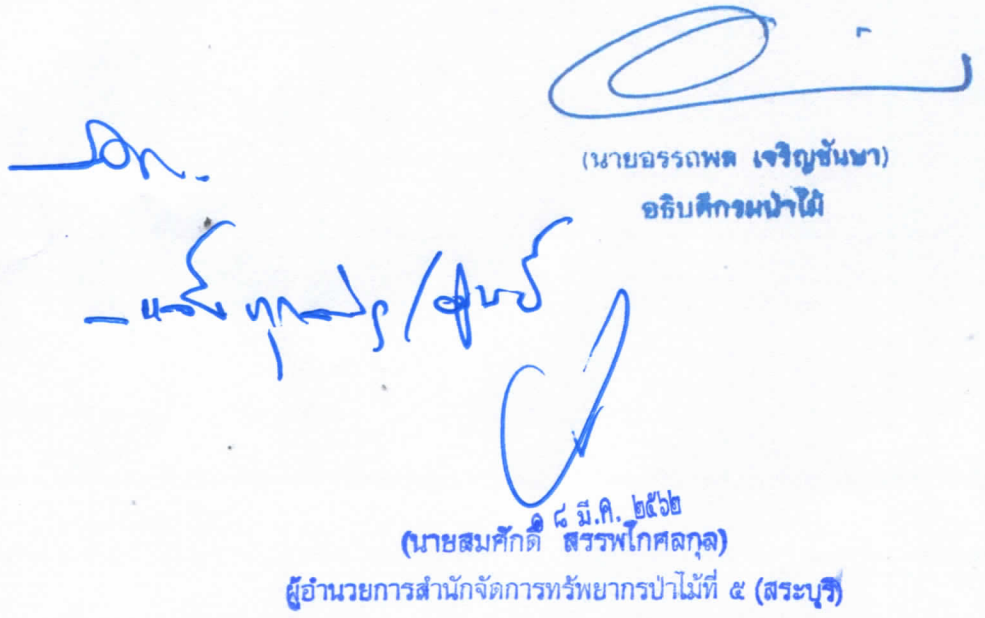 (นายอรรถพล เจริญชันษา)
อธิบดีกรมป่าไม้
- แจ้งทุกส่วน/ศูนย์
๑๘ มี.ค. ๒๕๖๒
(นายสมศักดิ์ สรรพโกศลกุล)
ผู้อำนวยการสำนักจัดการทรัพยากรป่าไม้ที่ ๕ (สระบุรี)